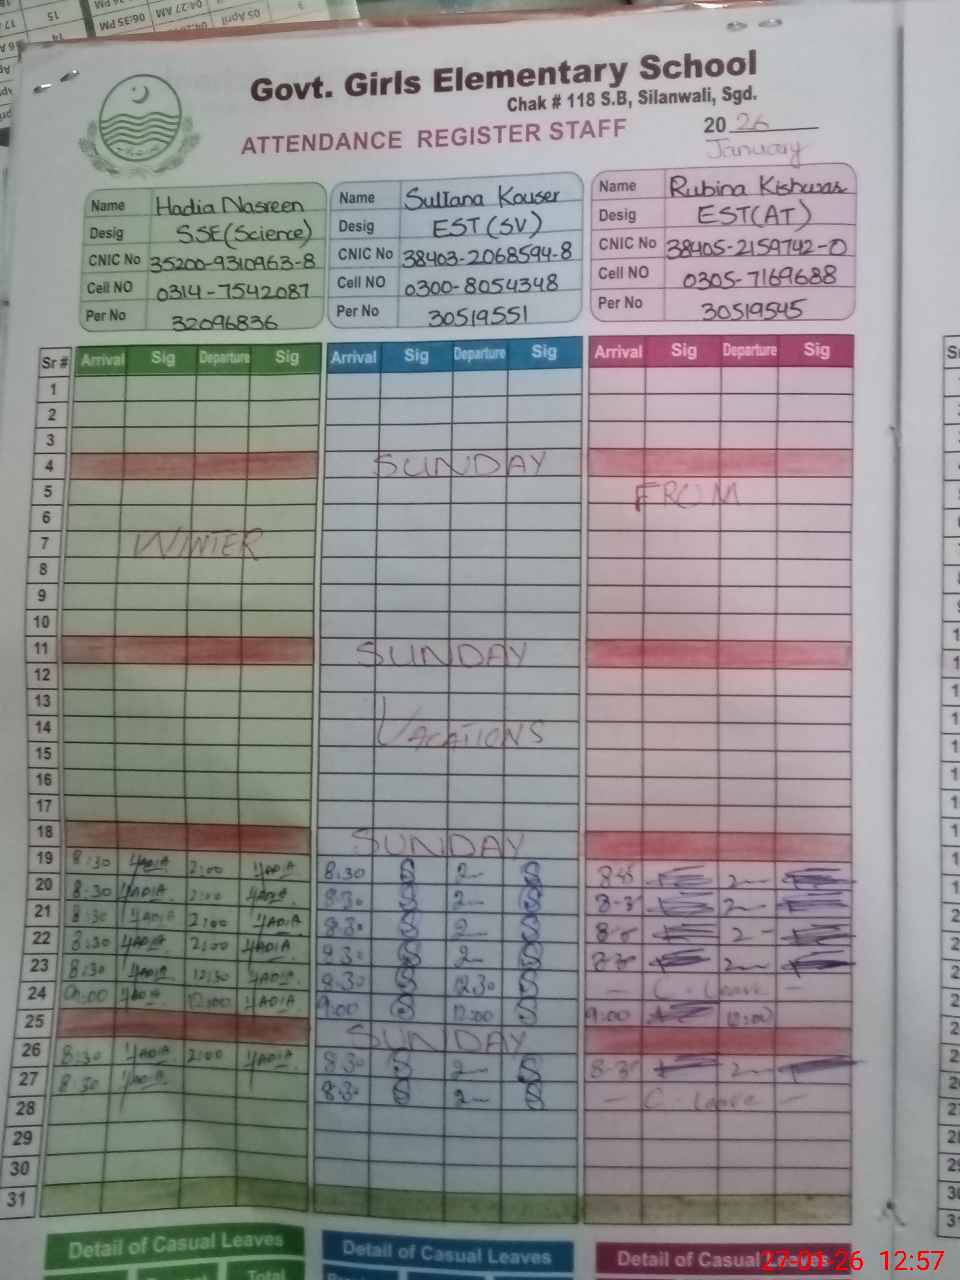 Govt. Girls Elementary School
Chak # 118 S.B, Silanwali, Sgd.
ATTENDANCE REGISTER STAFF
20 26
January
Name Hadia Nasreen
Desig SSE(Science)
CNIC No 35200-9310963-8
Cell NO 0314-7542087
Per No 32096836
Name Sultana Kouser
Desig EST(SV)
CNIC No 38403-2068594-8
Cell NO 0300-8054348
Per No 30519551
Name Rubina Kishwar
Desig EST(AT)
CNIC No 38405-2159742-0
Cell NO 0305-7169688
Per No 30519545
Sr # Arrival Sig Departure Sig Arrival Sig Departure Sig Arrival Sig Departure Sig
1
2
3
4 SUNDAY
5 FROM
6
7 WINTER
8
9
10
11 SUNDAY
12
13
14 VACATIONS
15
16
17
18 SUNDAY
19 8:30 HADIA 2:00 HADIA 8:30 S 2 S 2
20 8:30 HADIA 2:00 HADIA 8:30 S 2 S 2
21 8:30 HADIA 2:00 HADIA 8:30 S 2 S 2
22 8:30 HADIA 2:00 HADIA 8:30 S 2 S 2
23 8:30 HADIA 12:30 HADIA 8:30 S 12:30 S - C. Leave -
24 09:00 HADIA 12:00 HADIA 9:00 S 12:00 S 9:00 12:00
25 SUNDAY
26 8:30 HADIA 2:00 HADIA 8:30 S 2 S 8:30 2
27 8:30 HADIA 8:30 S 2 S - C. Leave -
28
29
30
31
Detail of Casual Leaves
Detail of Casual Leaves
Detail of Casual Leaves
Total
27-01-26 12:57